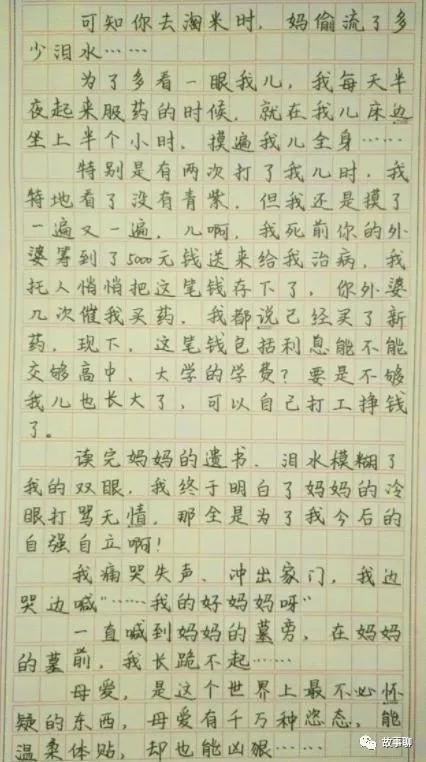 可知你去淘米时，妈偷流了多
少泪水……
为了多看一眼我儿，我每天半
夜起来服药的时候，就在我儿床边
坐上半个小时，摸遍我儿全身……
特别是有两次打了我儿时，我
特地看了没有青紫，但我还是摸了
一遍又一遍，儿啊，我死前你的外
婆筹到了5000元钱送来给我治病，我
托人悄悄把这笔钱存下了，你外婆
几次催我买药，我都说已经买了新
药，现下，这笔钱包括利息能不能
交够高中、大学的学费？要是不够
我儿也长大了，可以自己打工挣钱
了。
读完妈妈的遗书，泪水模糊了
我的双眼，我终于明白了妈妈的冷
眼打骂无情，那全是为了我今后的
自强自立啊！
我痛哭失声、冲出家门，我边
哭边喊“……我的好妈妈呀”
一直喊到妈妈的墓旁，在妈妈
的墓前，我长跪不起……
母爱，是这个世界上最不必怀
疑的东西，母爱有千万种恣态，能
温柔体贴，却也能凶狠……
故事聊